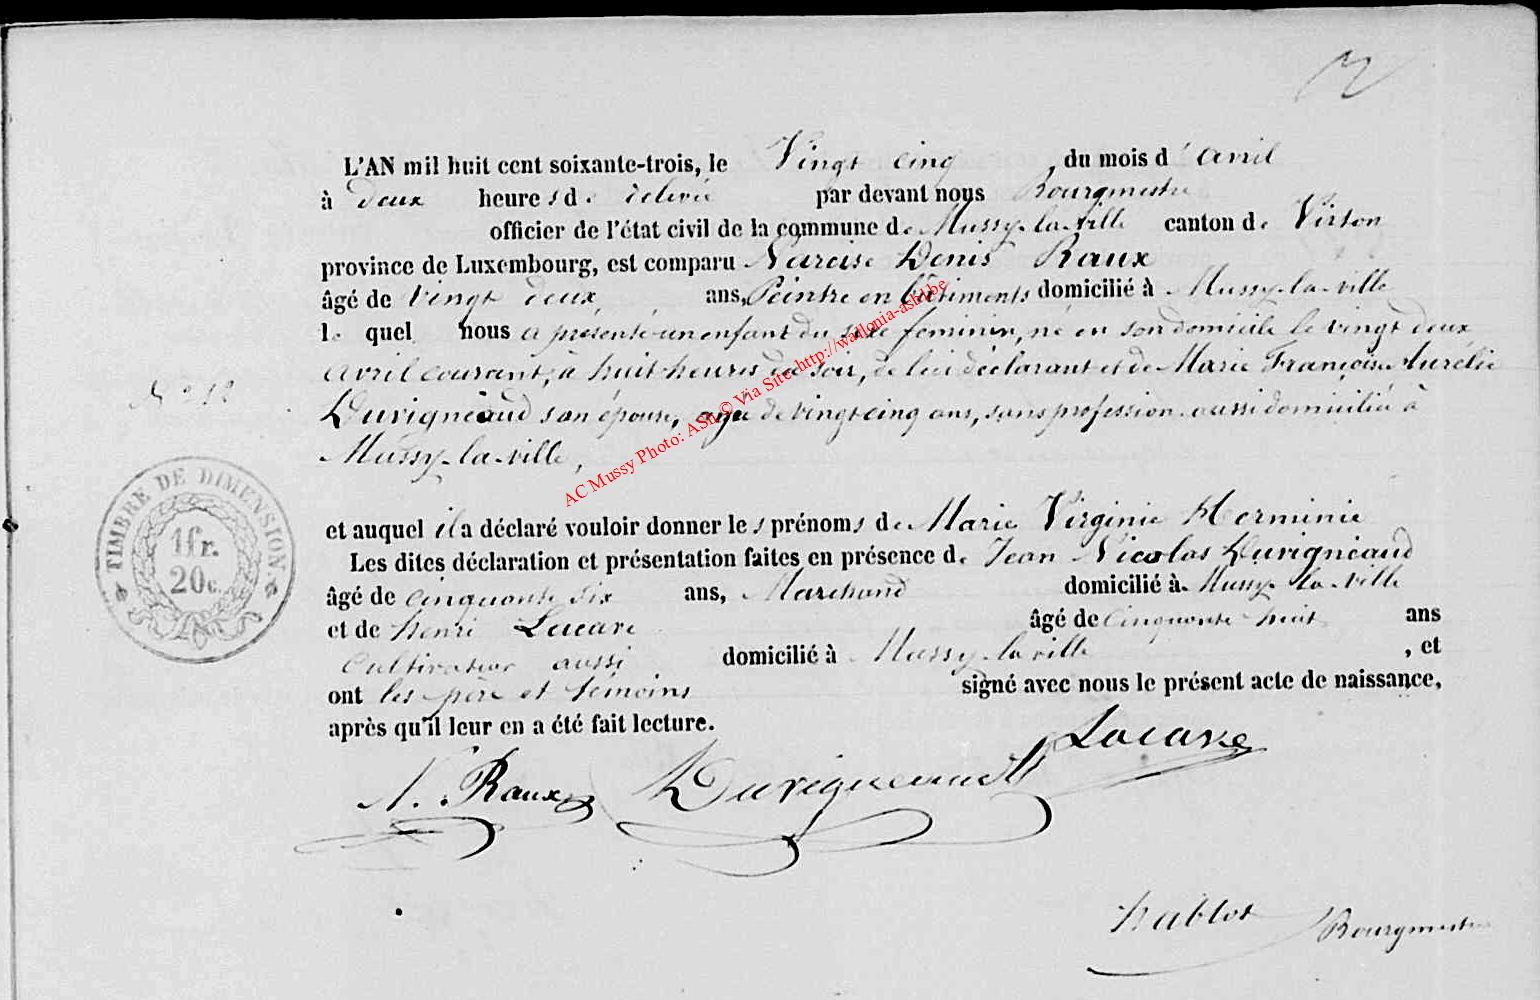 L'AN mil huit cent soixante-trois, le Vingt cinq du mois d'avril
à deux heures de relevée par devant nous Bourgmestre
officier de l'état civil de la commune de Mussy-la-ville canton de Virton
province de Luxembourg, est comparu Narcise Denis Raux
âgé de Vingt deux ans, Peintre en Bâtiments domicilié à Mussy-la-ville
le quel nous a présenté un enfant du sexe feminin, né en son domicile le vingt deux
avril courant, à huit heures du soir, de lui déclarant et de Marie Françoise Aurélie
N° 12
Duvigneaud son épouse, agée de vingt cinq ans, sans profession aussi domiciliée à
Mussy-la-ville,
TIMBRE DE DIMENSION
1fr.
20c.
et auquel il a déclaré vouloir donner les prénoms de Marie Virginie Herminie
Les dites déclaration et présentation faites en présence de Jean Nicolas Duvigneaud
âgé de cinquante six ans, Marchand domicilié à Mussy-la-ville
et de henri Lacave âgé de Cinquante huit ans
Cultivateur aussi domicilié à Mussy-la ville, et
ont les père et témoins signé avec nous le présent acte de naissance,
après qu'il leur en a été fait lecture.
Lacave
N. Raux Duvigneaud
hablot Bourgmestre
AC Mussy Photo: ASBL© Via Site http://wallonia-asbl.be